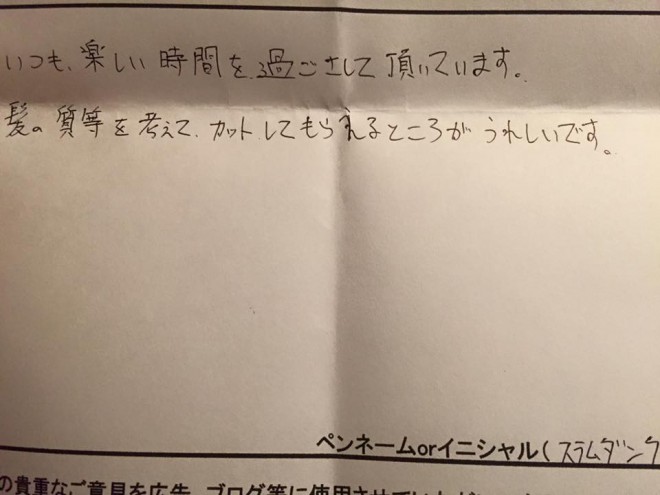 いつも、楽しい時間を過ごさして頂いています。
髪の質等を考えて、カットしてもらえるところがうれしいです。
ペンネームorイニシャル(スラムダンク
の貴重なご意見を広告、ブログ等に使用させていただ